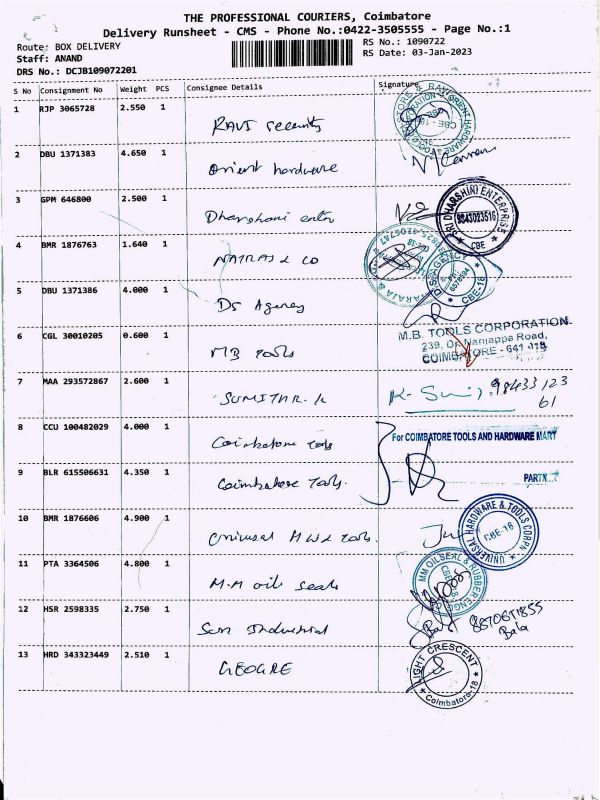 THE PROFESSIONAL COURIERS, Coimbatore
Delivery Runsheet - CMS - Phone No.:0422-3505555 - Page No.:1
Route: BOX DELIVERY
RS No.: 1090722
Staff: ANAND
RS Date: 03-Jan-2023
DRS No.: DCJB109072201
S No Consignment No Weight PCS Consignee Details Signature
1 RJP 3065728 2.550 1
RAVI security
2 DBU 1371383 4.650 1
orient hardware
3 GPM 646800 2.500 1
Dharshani enter
SRI DHARSHINI ENTERPRISE
9843023516
CBE
4 BMR 1876763 1.640 1
NATRAJ & CO
5 DBU 1371386 4.000 1
DS Agency
CBE-18
6 CGL 30010205 0.600 1
MB tools
M.B. TOOLS CORPORATION
239, Dr. Nanjappa Road,
COIMBATORE - 641 018
7 MAA 293572867 2.600 1
SUMITHR. K
98433 123
61
8 CCU 100482029 4.000 1
Coimbatore tools
For COIMBATORE TOOLS AND HARDWARE MART
9 BLR 615506631 4.350 1
Coimbatore Tools.
10 BMR 1876606 4.900 1
universal H W & tools.
UNIVERSAL HARDWARE & TOOLS CORPN
CBE-18
11 PTA 3364506 4.800 1
M.M oil seals
MM OILSEAL & RUBBER ENGG
12 HSR 2598335 2.750 1
Sun Industrial
Bala
13 HRD 343323449 2.510 1
GEOGRE
LIGHT CRESCENT
Coimbatore-18